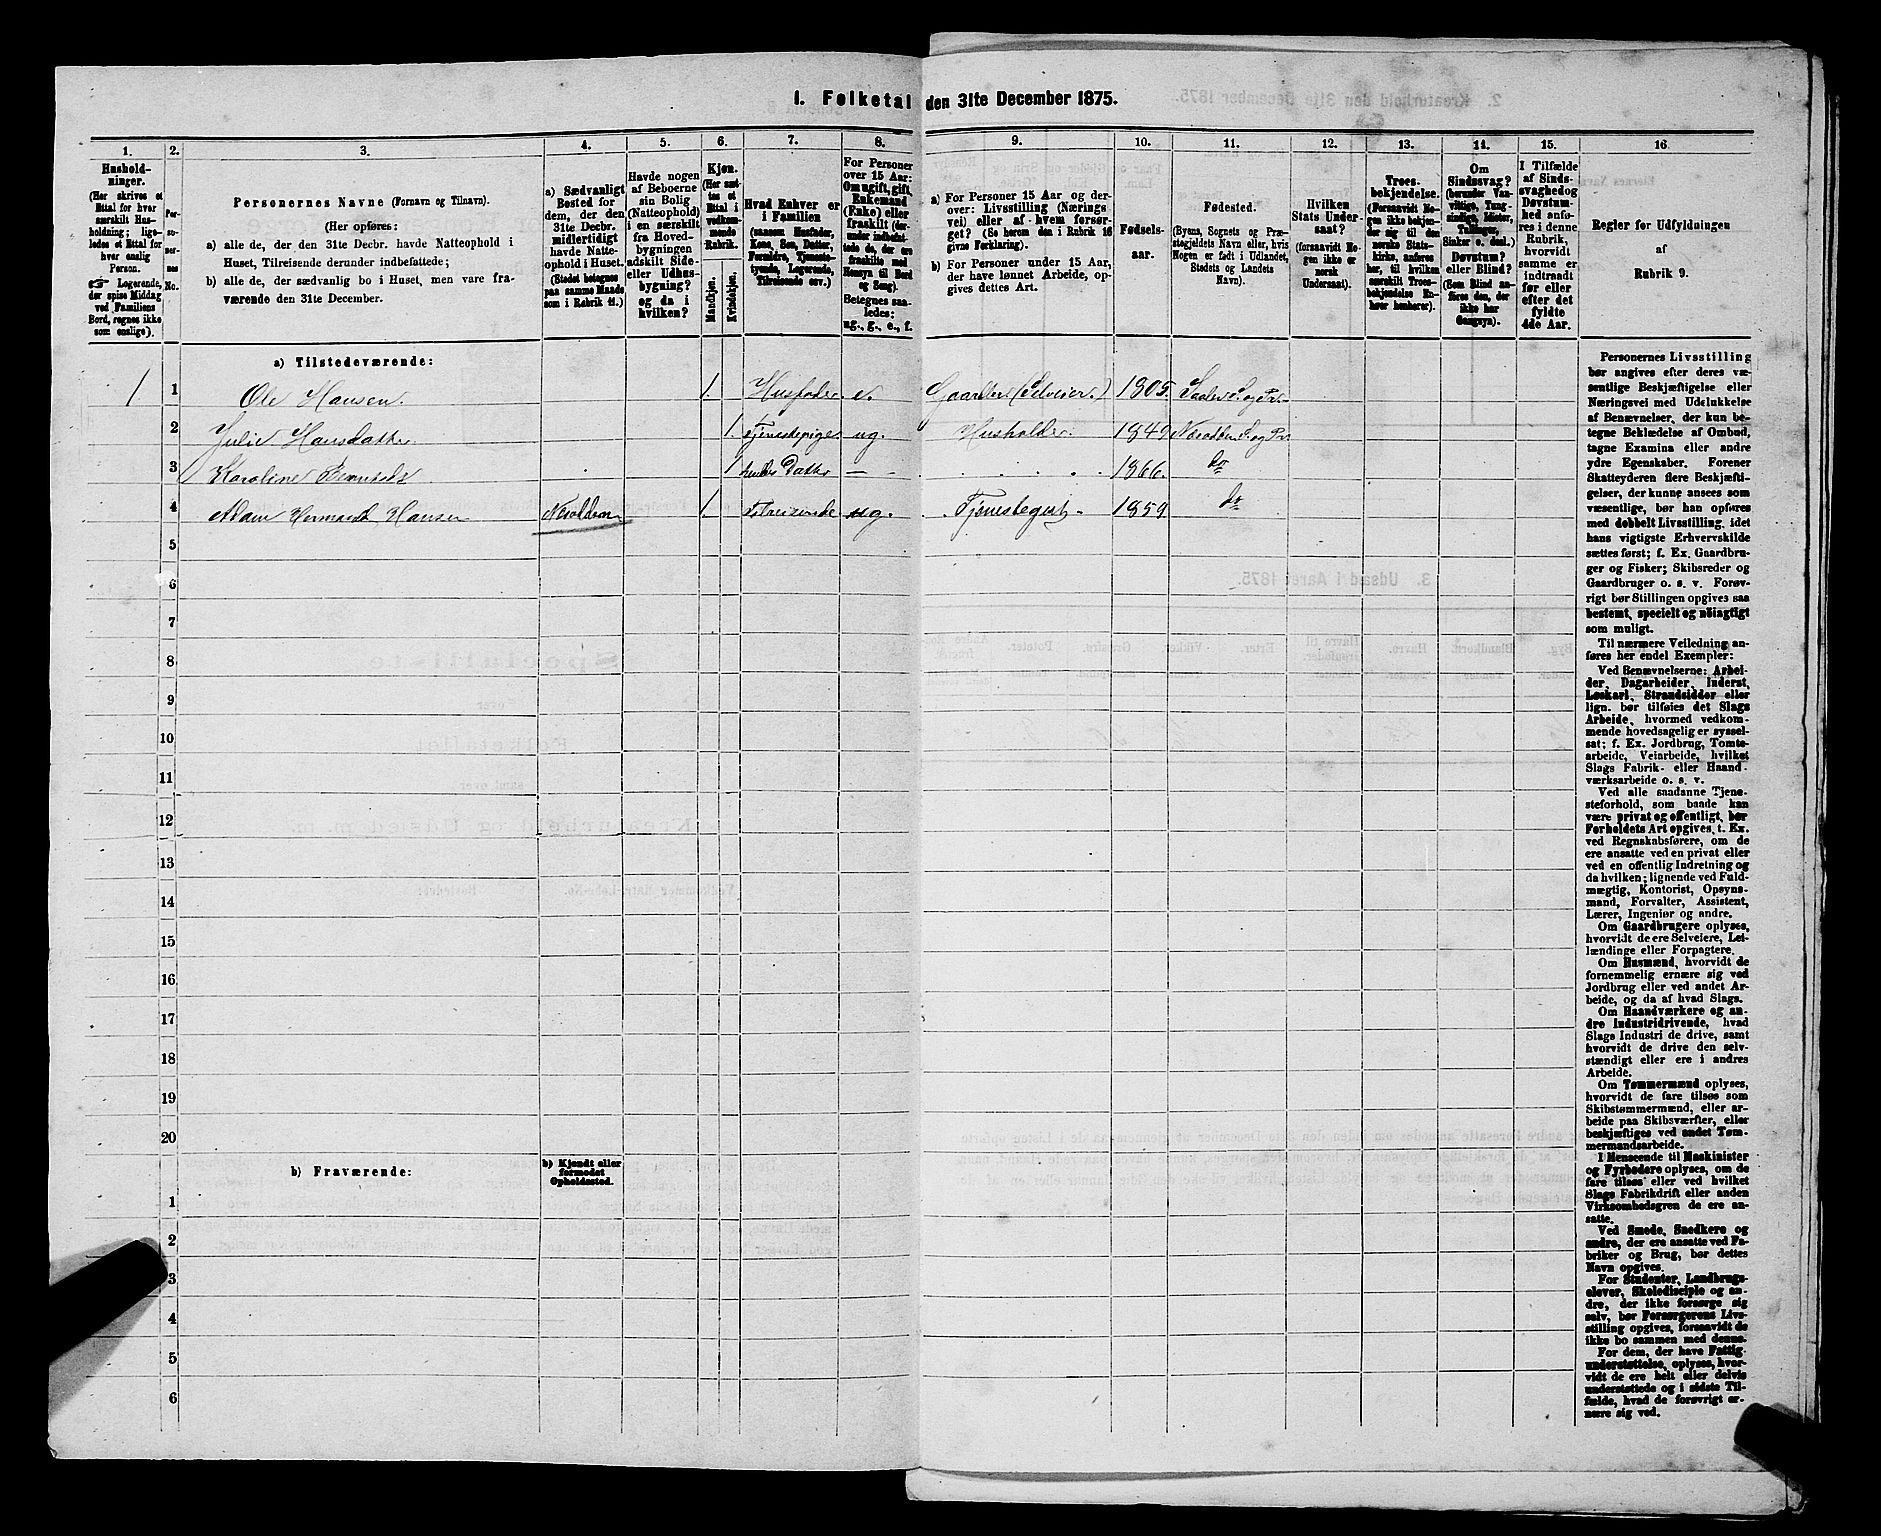 1. Folketal den 31te December 1875.
1. 2. 3. 4. 5. 6. 7. 8. 9. 10. 11. 12. 13. 14. 15. 16.
Hushold-
ninger.
(Her skrives et
Ettal for hver
særskilt Hus-
holdning; lige-
ledes et Ettal for
hver enslig
Person.
☞ Logerende,
der spise Middag
ved Familiens
Bord, regnes ikke
som enslige).
Per-
so-
ner-
nes
No.
Personernes Navne (Fornavn og Tilnavn).
(Her opføres:
a) alle de, der den 31te Decbr. havde Natteophold i
Huset, Tilreisende derunder indbefattede;
b) alle de, der sædvanlig bo i Huset, men vare fra-
værende den 31te December.
a) Sædvanligt
Bosted for
dem, der den
31te Decbr.
midlertidigt
havde Natte-
ophold i Huset.
(Stedet betegnes
paa samme Maade
som i Rubrik 11.)
Havde nogen
af Beboerne
sin Bolig
(Natteophold)
i en særskilt
fra Hoved-
bygningen
adskilt Side-
eller Udhus-
bygning?
og da i
hvilken?
Kjøn.
(Her sæt-
tes et
Ettal i
vedkom-
mende
Rubrik.
Mandkjøn.
Kvindekjøn.
Hvad Enhver er
i Familien
(saasom Husfader,
Kone, Søn, Datter,
Forældre, Tjeneste-
tyende, Logerende,
Tilreisende osv.)
For Personer
over 15 Aar:
Om ugift, gift,
Enkemand
(Enke) eller
fraskilt (der-
under indbefat-
tede de, der ere
fraskilte med
Hensyn til Bord
og Seng).
Betegnes saa-
ledes:
ug., g., e., f.
a) For Personer 15 Aar og der-
over: Livsstilling (Nærings
vei) eller af hvem forsør-
get? (So herom den i Rubrik 16
givne Forklaring).
b) For Personer under 15 Aar,
der have lønnet Arbeide, op-
gives dettes Art.
Fødsels-
aar.
Fødested.
(Byens, Sognets og Præ-
stegjeldets Navn eller, hvis
Nogen er født i Udlandet,
Stedets og Landets
Navn).
Hvilken
Stats Under-
saat?
(forsaavidt No-
gen ikke er
norsk
Undersaat).
Troes-
bekjendelse.
(Forsaavidt No-
gen ikke bekjen-
der sig til den
norske Stats-
kirke, anføres
her, til hvilken
særskilt Troes-
bekjendelse En-
hver henhører).
Om
Sindssvag?
(herunder Van-
vittige, Tung-
sindige, Idioter,
Tullinger,
Sinker o. desl.)
Døvstum?
eller Blind?
(Som Blind an-
føres den, der
ikke har
Gangsyn).
I Tilfælde
af Sinds-
svaghed og
Døvstum-
hed anfø-
res i denne
Rubrik,
hvorvidt
samme er
indtraadt
før eller
efter det
fyldte
4de Aar.
Regler for Udfyldningen
af
Rubrik 9.
a) Tilstedeværende:
1 1 Ole Hansen. 1. Husfader e. Gaardbr. (Selveier.) 1805.
2 Julie Hansdatter 1. Tjenestepige ug. Husholder. 1849
3 Karoline 1 Datter — 1866. do
4 Adam Hansen 1. Tilreisende ug. Tjenestegut. 1859 do
5
6
7
8
9
10
11
12
13
14
15
16
17
18
19
20
b) Fraværende:
b) Kjendt eller
formodet
Opholdssted.
1
2
3
4
5
6
Personernes Livsstilling
bør angives efter deres væ-
sentlige Beskjæftigelse eller
Næringsvei med Udelukkelse
af Benævnelser, der kun be-
tegne Beklædelse af Ombud,
tagne Examina eller andre
ydre Egenskaber. Forener
Skatteyderen flere Beskjæfti-
gelser, der kunne ansees som
væsentlige, bør han opføres
med dobbelt Livsstilling, idet
hans vigtigste Erhvervskilde
sættes først; f. Ex. Gaardbru-
ger og Fisker; Skibsreder og
Gaardbruger o. s. v. Forøv-
rigt bør Stillingen opgives saa
bestemt, specielt og nöiagtigt
som muligt.
Til nærmere Veiledning an-
føres her endel Exempler:
Ved Benævnelserne: Arbei-
der, Dagarbeider, Inderst,
Løskarl, Strandsidder eller
lign. bør tilføies det Slags
Arbeide, hvormed vedkom-
mende hovedsagelig er syssel-
sat; f. Ex. Jordbrug, Tomte-
arbeide, Veiarbeide, hvilket
Slags Fabrik- eller Haand-
værksarbeide o. s. v.
Ved alle saadanne Tjene-
steforhold, som baade kan
være privat og offentligt, bør
Forholdets Art opgives, t. Ex.
ved Regnskabsførere, om de
ere ansatte ved en privat eller
ved en offentlig Indretning og
da hvilken; lignende ved Fuld-
mægtig, Kontorist, Opsyns-
mand, Forvalter, Assistent,
Lærer, Ingeniør og andre.
Om Gaardbrugere oplyses,
hvorvidt de ere Selveiere, Lei-
lændinge eller Forpagtere.
Om Husmænd, hvorvidt de
fornemmelig ernære sig ved
Jordbrug eller ved andet Ar-
beide, og da af hvad Slags.
Om Haandværkere og an-
dre Industridrivende, hvad
Slags Industri de drive, samt
hvorvidt de drive den selv-
stændigt eller ere i andres
Arbeide.
Om Tømmermænd oplyses,
hvorvidt de fare tilsøs som
Skibstømmermænd, eller ar-
beide paa Skibsværfter, eller
beskjæftiges ved andet Tøm-
mermandsarbeide.
I Henseende til Maskinister
og Fyrbødere oplyses, om de
fare tilsøs eller ved hvilket
Slags Fabrikdrift eller anden
Virksomhedsgren de ere an-
satte.
Ved Smede, Snedkere og
andre, der ere ansatte ved Fa-
briker og Brug, bør dettes
Navn opgives.
For Studenter, Landbrugs-
elever, Skoledisciple og an-
dre, der ikke forsørge sig
selv, bør Forsørgerens Livs-
stilling opgives, forsaavidt de
ikke bo sammen med denne.
For dem, der have Fattig-
understøttelse, oplyses, hvor-
vidt de ere helt eller delvis
understøttede og i sidste Til-
fælde, hvad de forøvrigt er-
nære sig ved.